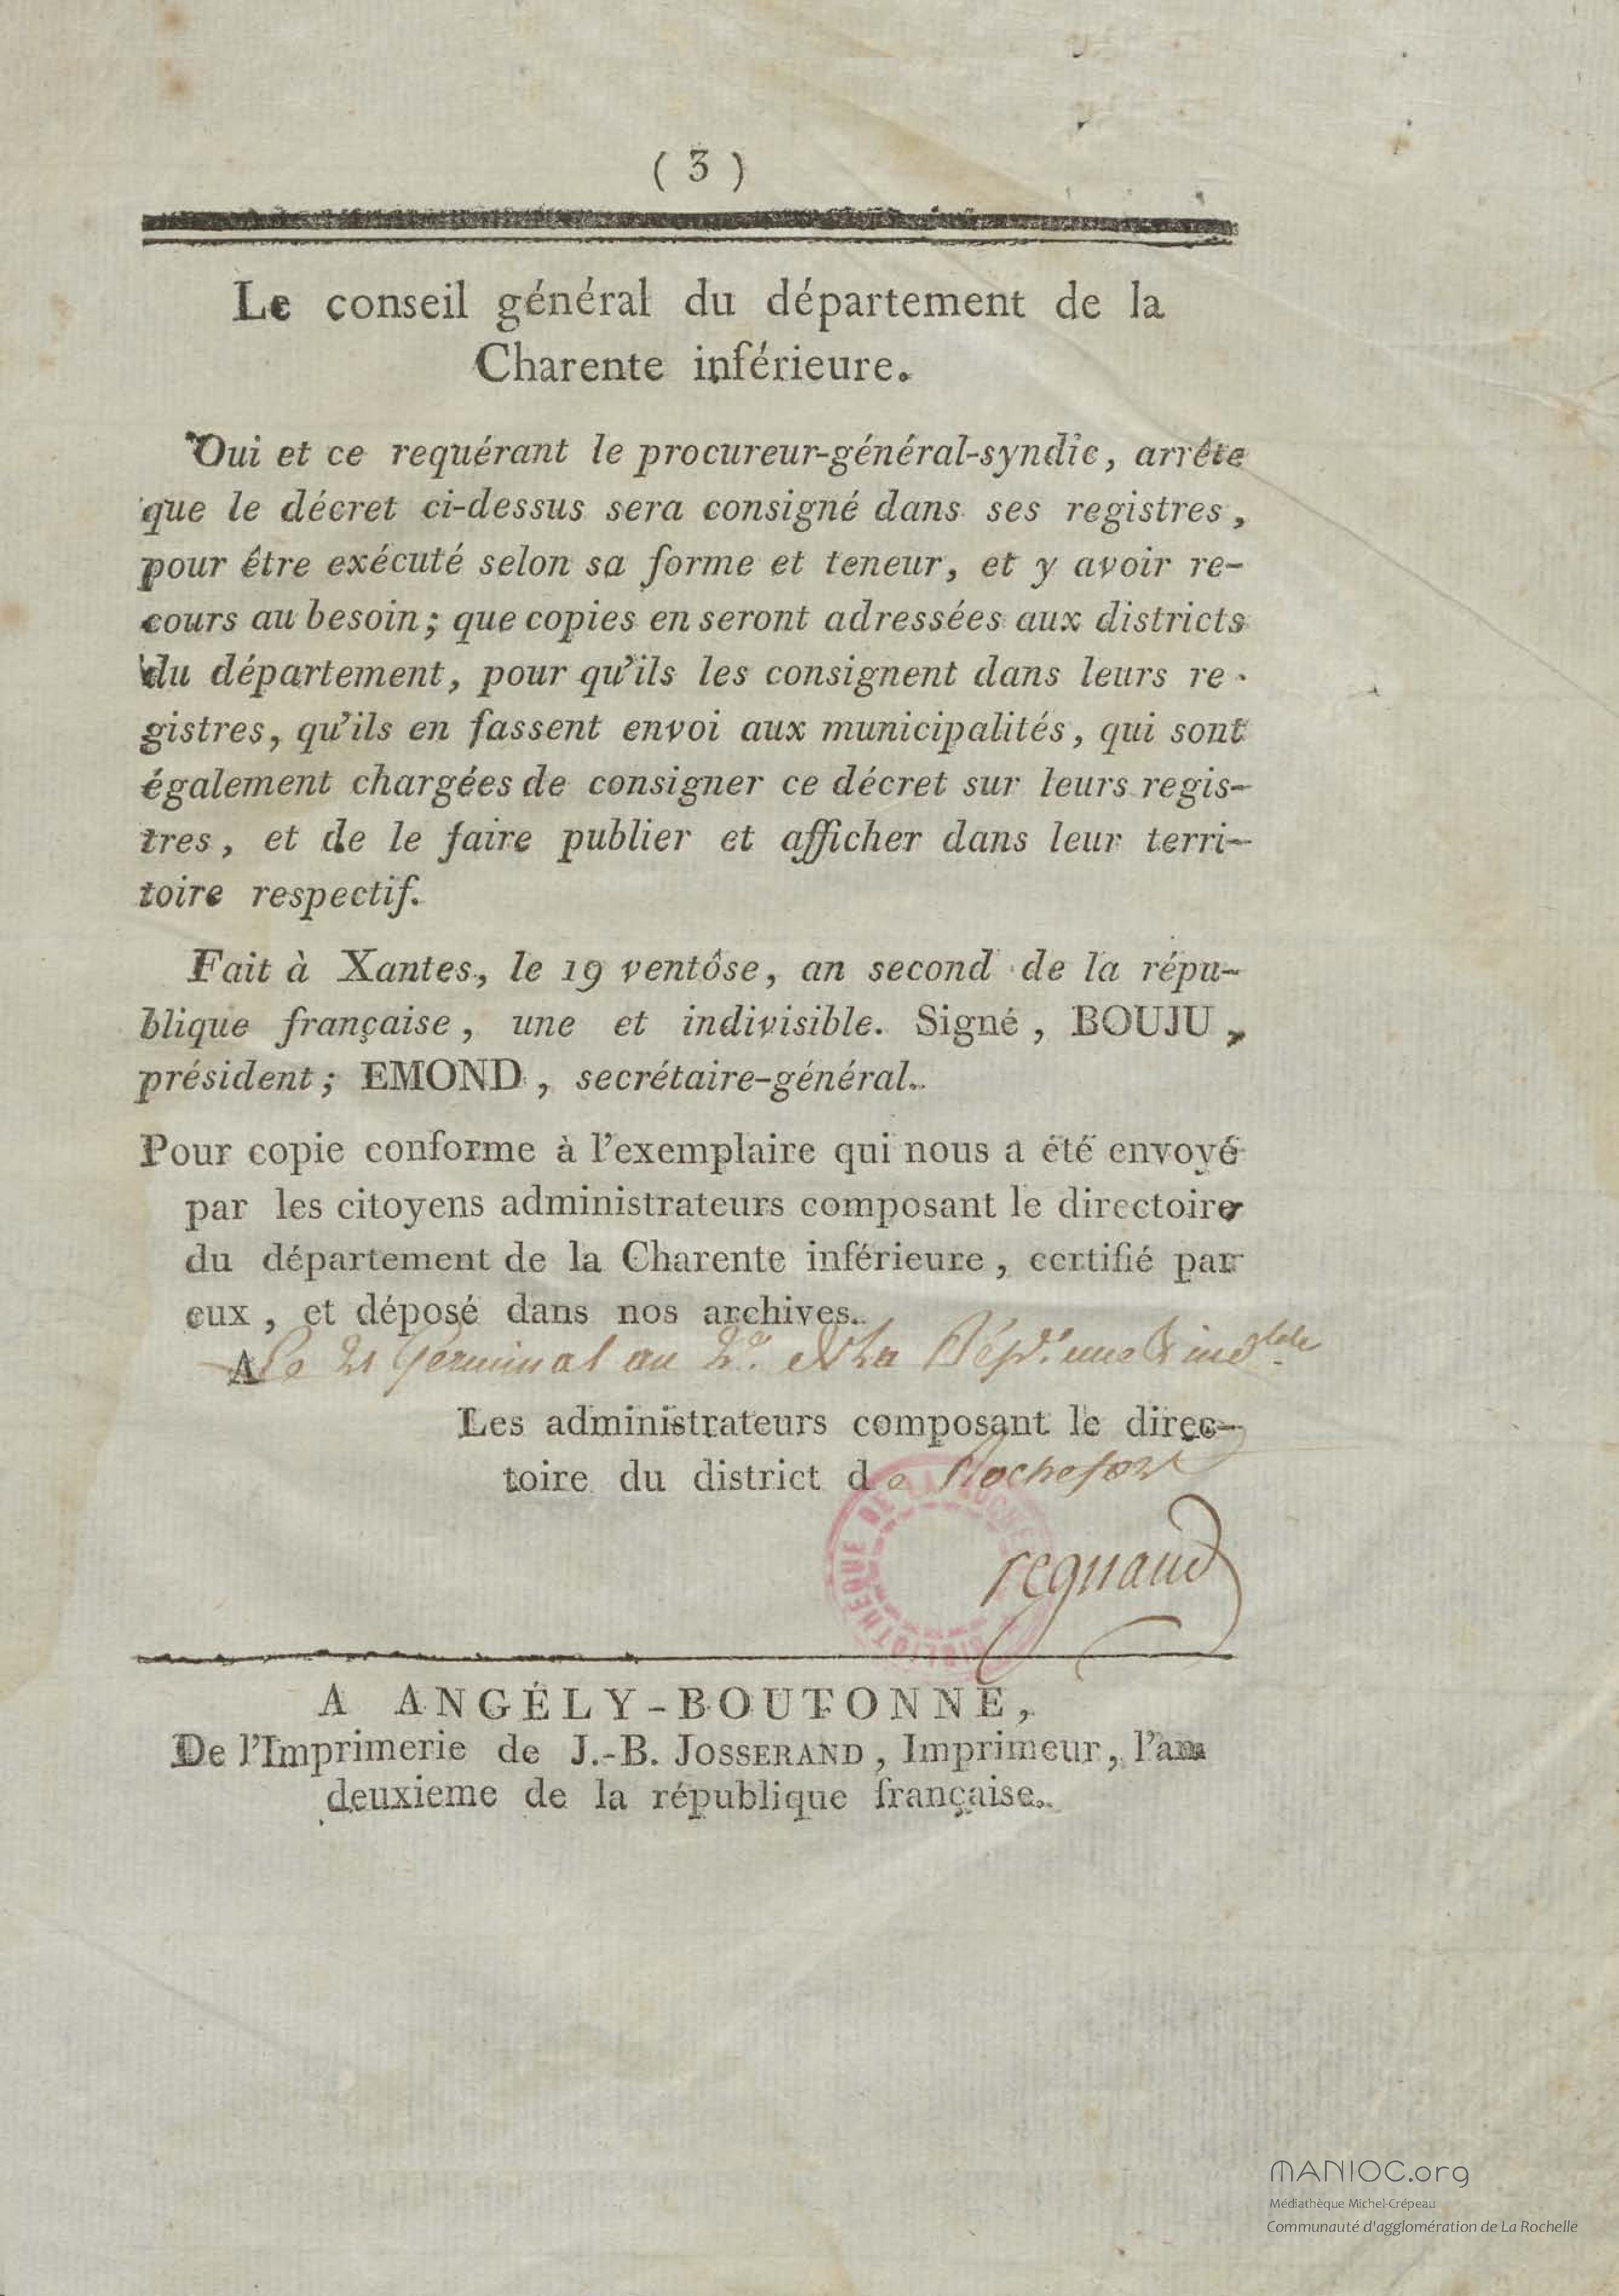 ( 3 )
Le conseil général du département de la
Charente inférieure.
Oui et ce requérant le procureur-général-syndic, arrête
que le décret ci-dessus sera consigné dans ses registres,
pour être exécuté selon sa forme et teneur, et y avoir re-
cours au besoin; que copies en seront adressées aux districts
du département, pour qu'ils les consignent dans leurs re-
gistres, qu'ils en fassent envoi aux municipalités, qui sont
également chargées de consigner ce décret sur leurs regis-
tres, et de le faire publier et afficher dans leur terri-
toire respectif.
Fait à Xantes, le 19 ventôse, an second de la répu-
blique française, une et indivisible. Signé, BOUJU,
président; EMOND, secrétaire-général.
Pour copie conforme à l'exemplaire qui nous a été envoyé
par les citoyens administrateurs composant le directoire
du département de la Charente inférieure, certifié par
eux, et déposé dans nos archives.
A Le 21 Germinal an 2e. de La Rép. une & indble.
Les administrateurs composant le direc-
toire du district de Rochefort
regnaud
BIBLIOTHEQUE DE LA ROCHE
A ANGÉLY-BOUTONNE,
De l'Imprimerie de J.-B. JOSSERAND, Imprimeur, l'an
deuxieme de la république française.
MANIOC.org
Médiathèque Michel-Crépeau
Communauté d'agglomération de La Rochelle